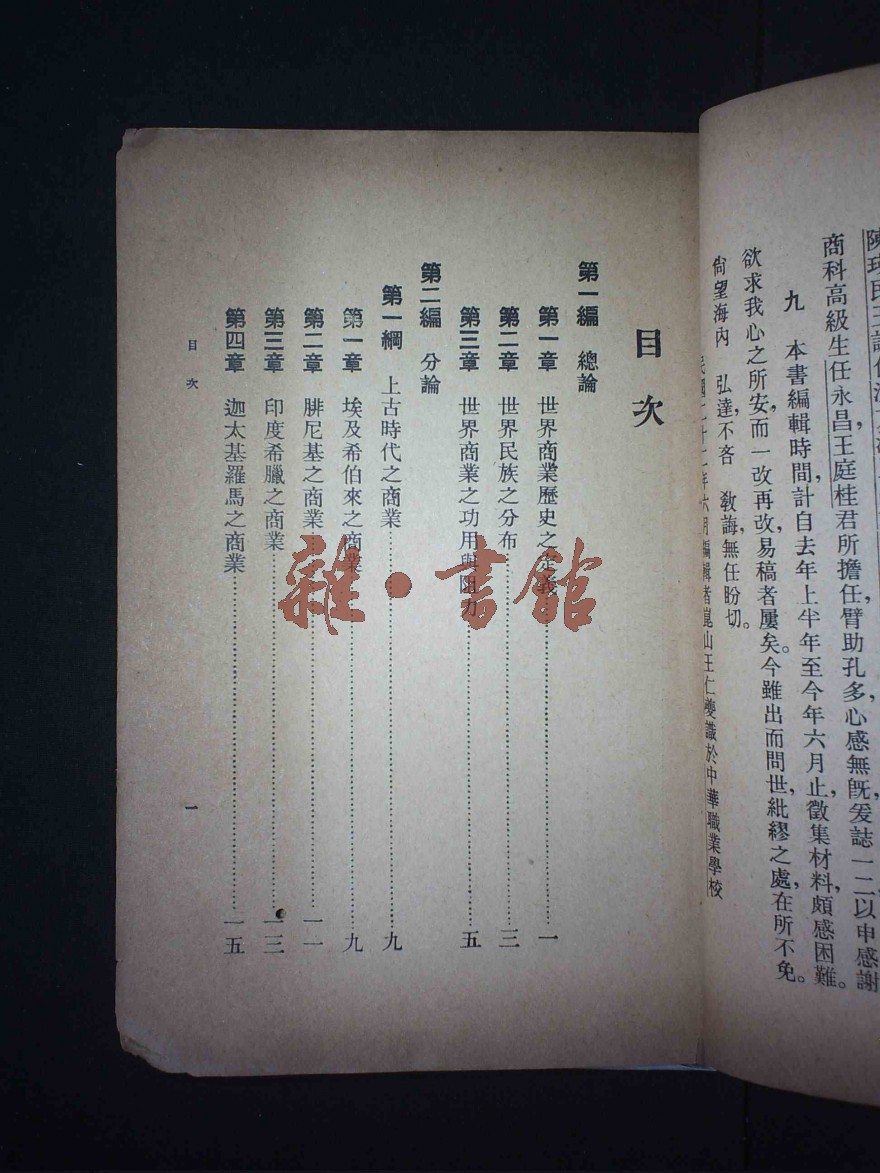 商科高級生任永昌，王庭桂君所擔任，臂助孔多，心感無旣，爰誌一二，以申感謝。
九　本書編輯時間，計自去年上半年至今年六月止，徵集材料，頗感困難。
欲求我心之所安，而一改再改，易稿者屢矣。今雖出而問世，紕繆之處，在所不免。
尙望海內　弘達，不吝　敎誨，無任盼切。
民國二十二年六月編輯者崑山王仁夔識於中華職業學校
目次
第一編　總論
第一章　世界商業歷史之定義……一
第二章　世界民族之分布……三
第三章　世界商業之功用與阻力……五
第二編　分論
第一綱　上古時代之商業……九
第一章　埃及希伯來之商業……九
第二章　腓尼基之商業……一一
第三章　印度希臘之商業……一三
第四章　迦太基羅馬之商業……一五
目次
一
雜·書館